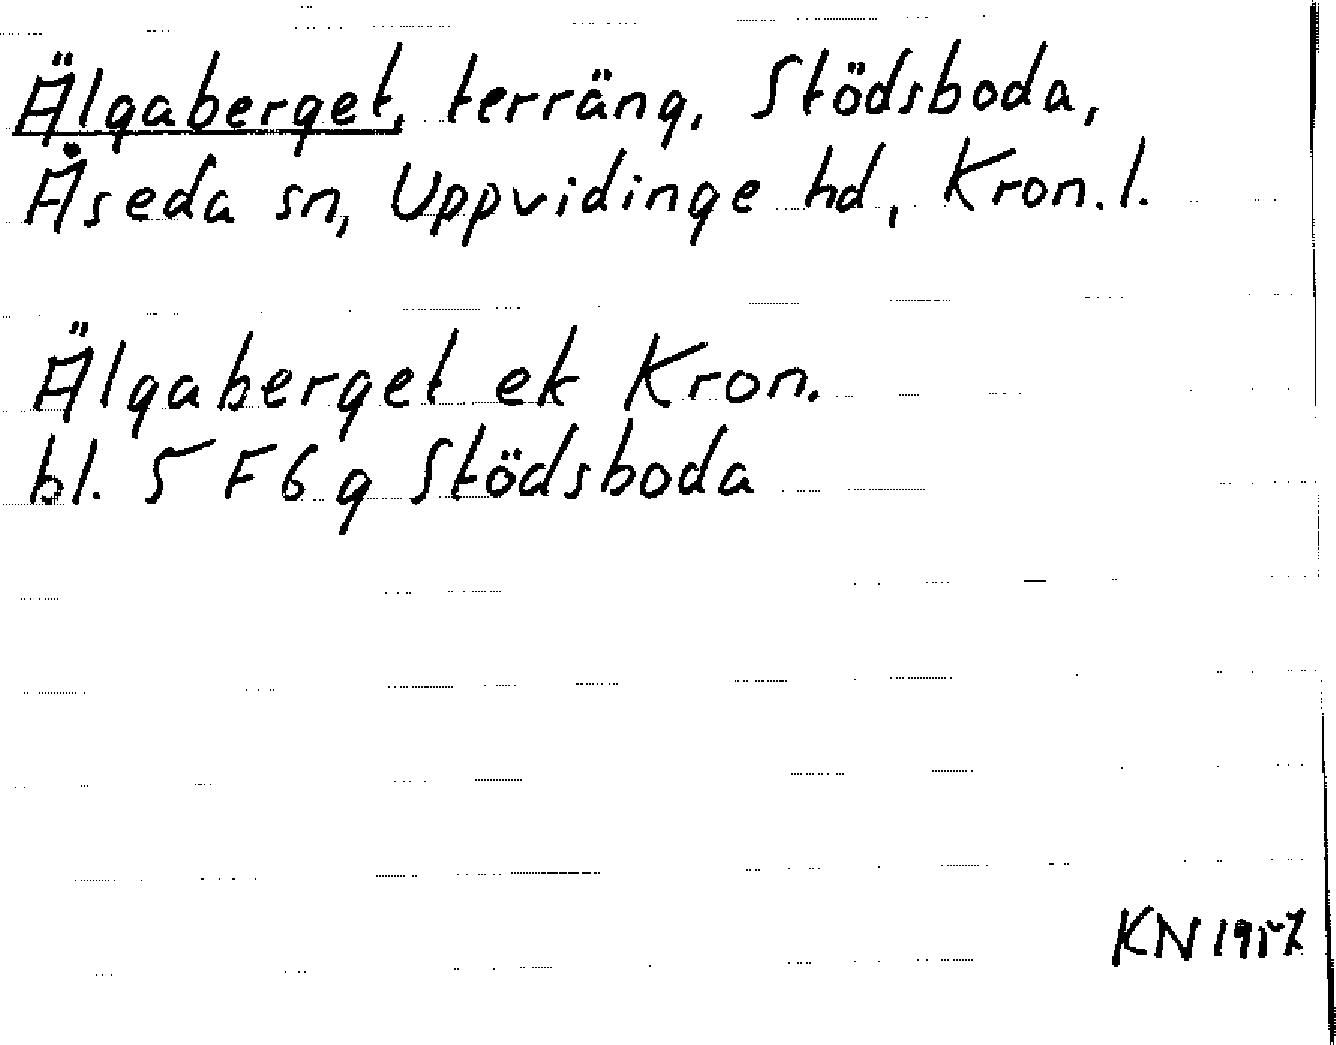 Älgaberget, terräng, Stödsboda,
Åseda sn, Uppvidinge hd, Kron. l.
Älgaberget ek Kron.
bl. 5 F 6 g Stödsboda
KN 1957